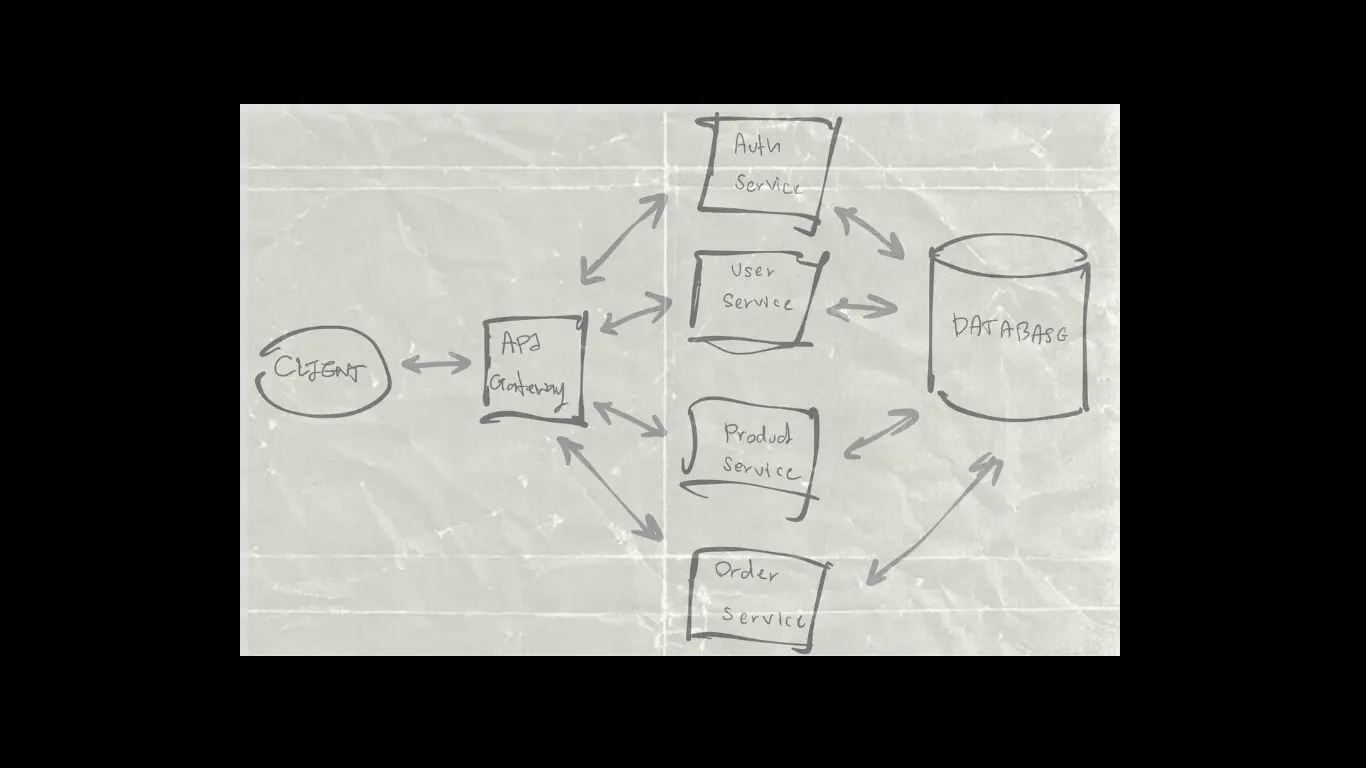 CLIENT
API
Gateway
Auth
Service
User
Service
Product
Service
Order
Service
DATABASE